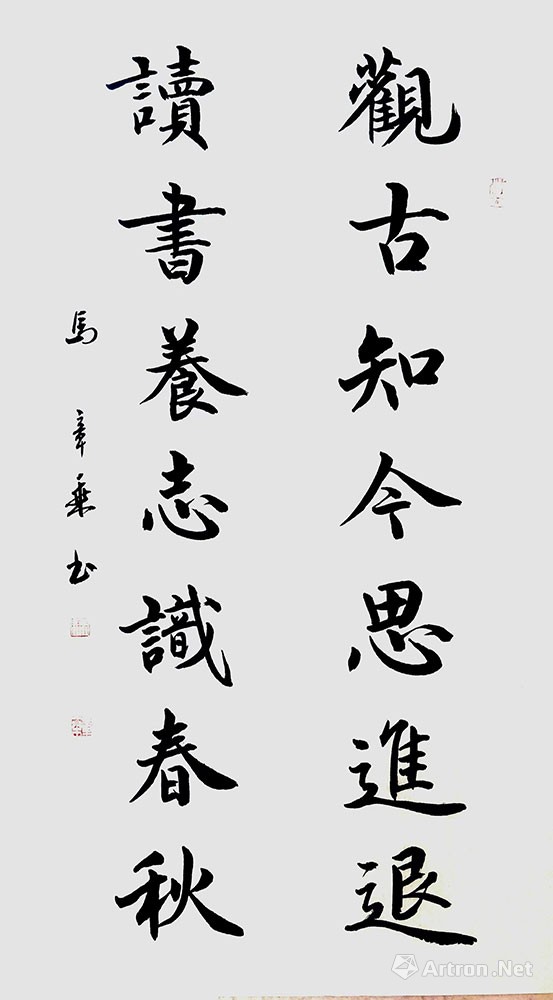 觀古知今思進退
讀書養志識春秋
馬章乘书
Artron.Net